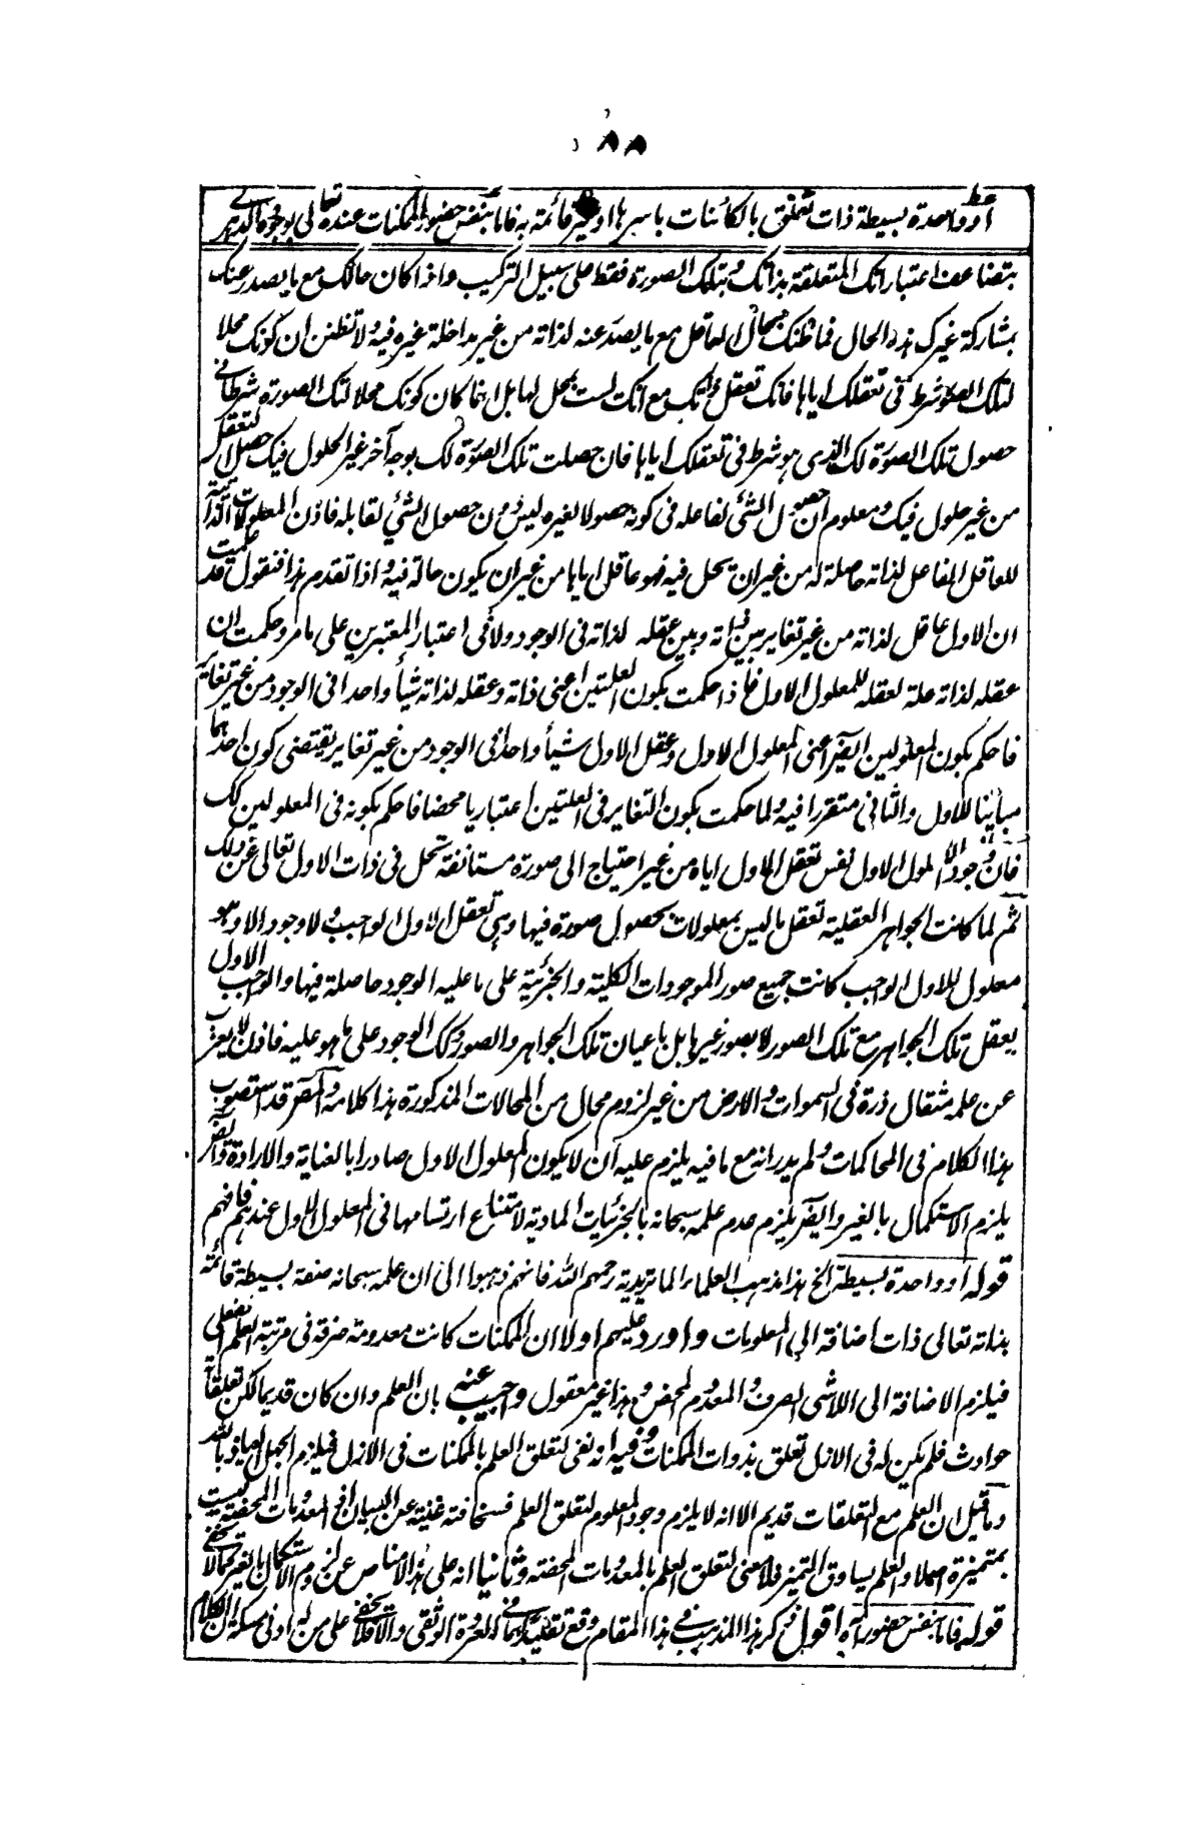 ٨٨
او واحدة بسيطة ذات تعلق بالكائنات باسرها او غير قائمة به فاما بنفس حضور الممكنات عنده تعالى بوجودها الدهرى
بتضاعف اعتباراتك المتعلقة بذاتك وبتلك الصورة فقط على سبيل التركيب واذا كان حالك مع ما يصدر عنك
بمشاركة غيرك هذه الحال فما ظنك بحال العاقل مع ما يصدر عنه لذاته من غير مداخلة غيره فيه ولا تظنن ان كونك محلا
لتلك الصورة شرط فى تعقلك اياها فانك تعقل ذاتك مع انك لست بمحل لها بل انما كان كونك محلا لتلك الصورة شرطا فى
حصول تلك الصورة لك الذى هو شرط فى تعقلك اياها فان حصلت تلك الصورة لك بوجه آخر غير الحلول فيك حصل التعقل
من غير حلول فيك ومعلوم ان حصول الشئ لفاعله فى كونه حصولا لغيره ليس دون حصول الشئ لقابله فاذن المعلولات الذاتية
للعاقل الفاعل لذاته حاصلة له من غير ان يحل فيه فهو عاقل اياها من غير ان يكون حالة فيه واذا تقدم هذا فنقول قد علمت
ان الاول عاقل لذاته من غير تغاير بين ذاته وبين عقله لذاته فى الوجود ولا فى اعتبار المعتبرين على ما مر وحكمت ان
عقله لذاته علة لعقله للمعلول الاول فاذا حكمت بكون العلتين اعنى ذاته وعقله لذاته شيأ واحدا فى الوجود من غير تغاير
فاحكم بكون المعلولين ايضا اعنى المعلول الاول وعقل الاول شيأ واحدا فى الوجود من غير تغاير يقتضى كون احدهما
مباينا للاول والثانى متقررا فيه ولما حكمت بكون التغاير فى العلتين اعتباريا محضا فاحكم بكونه فى المعلولين كك
فان وجود المعلول الاول نفس تعقل الاول اياه من غير احتياج الى صورة مستانفة تحل فى ذات الاول تعالى عن ذلك
ثم لما كانت الجواهر العقلية تعقل ما ليس بمعلولات بحصول صورة فيها وهى تعقل الاول الواجب ولا وجود الا وهو
معلول للاول الواجب كانت جميع صور الموجودات الكلية والجزئية على ما عليه الوجود حاصلة فيها والواجب الاول
يعقل تلك الجواهر مع تلك الصور لا بصور غيرها بل باعيان تلك الجواهر والصور وكك الوجود على ما هو عليه فاذن لا يعزب
عن علمه مثقال ذرة فى السموات والارض من غير لزوم محال من المحالات المذكورة هذا كلامه قد استصوب
هذا الكلام فى المحاكمات ولم يدر انه مع ما فيه يلزم عليه ان لا يكون المعلول الاول صادرا بالعناية والارادة وايضا
يلزم الاستكمال بالغير وايضا يلزم عدم علمه سبحانه بالجزئيات المادية لامتناع ارتسامها فى المعلول الاول عندهم فافهم
قوله او واحدة بسيطة الخ هذا مذهب العلماء الماتريدية رحمهم الله فانهم ذهبوا الى ان علمه سبحانه صفة بسيطة قائمة
بذاته تعالى ذات اضافة الى المعلومات واورد عليهم اولا ان الممكنات كانت معدومة صرفة فى مرتبة العلم الفعلى
فيلزم الاضافة الى اللاشى الصرف والمعدوم المحض وهذا غير معقول واجيب عنه بان العلم وان كان قديما لكن تعلقاته
حوادث فلم يكن له فى الازل تعلق بذوات الممكنات وفيه انه نفى لتعلق العلم بالممكنات فى الازل فيلزم الجهل العياذ بالله
وما قيل ان العلم مع التعلقات قديم الا انه لا يلزم وجود المعلوم لتعلق العلم فسخافته غنية عن البيان اذ المعدومات المحضة ليست
بمتميزة اصلا والعلم يساوق التميز فلا معنى لتعلق العلم بالمعدومات المحضة وثانيا انه على هذا لا مناص عن لزوم الاستكمال بالغير كما لا يخفى
قوله فاما بنفس حضور آه اقول ذكر هذا المذهب فى هذا المقام وقع تقليدا لما فى العروة الوثقى والا فلا يخفى على من له ادنى مسكة ان الكلام